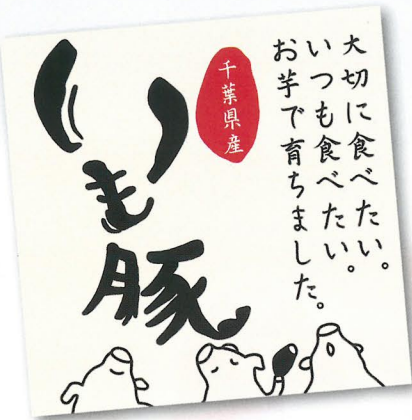 大切に食べたい。
いつも食べたい。
お芋で育ちました。
千葉県産
いも豚